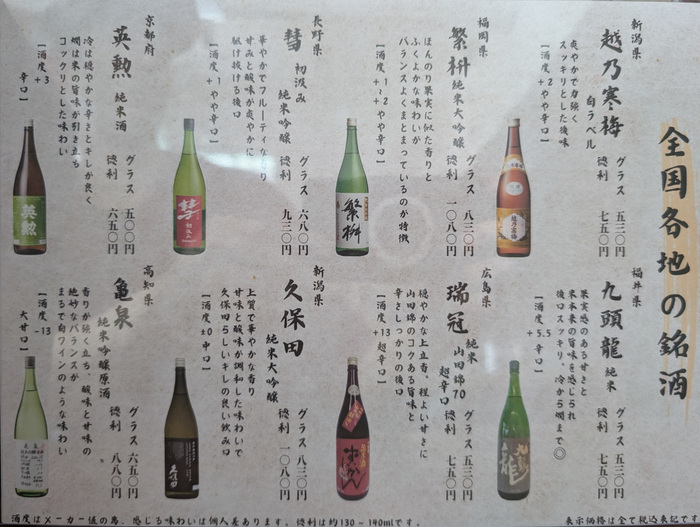 全国各地の銘酒
新潟県
越乃寒梅
白ラベル
グラス 五三〇円
徳利 七五〇円
爽やかで力強く
スッキリとした後味
【酒度+2 やや辛口】
福岡県
繁桝
純米大吟醸
グラス 八三〇円
徳利 一〇八〇円
ほんのり果実に似た香りと
ふくよかな味わいが
バランスよくまとまっているのが特徴
【酒度+1~+2 やや辛口】
長野県
彗
初汲み
純米吟醸
グラス 六八〇円
徳利 九三〇円
華やかでフルーティな香り
甘みと酸味が爽やかに
駆け抜ける後口
【酒度+1 やや辛口】
京都府
英勲
純米酒
グラス 五〇〇円
徳利 六五〇円
冷は穏やかな辛さとキレが良く
燗は米の旨味が引き立ち
コックリとした味わい
【酒度+3 辛口】
福井県
九頭龍
純米
グラス 五三〇円
徳利 七五〇円
果実感のある甘さと
本来の旨味を感じられ
後口スッキリ。冷から燗まで◎
【酒度+5.5 辛口】
広島県
瑞冠
純米
山田錦70
超辛口
グラス 五三〇円
徳利 七五〇円
穏やかな上立香。程よい甘さに
山田錦のコクある旨味と
辛さしっかりの後口
【酒度+13 超辛口】
新潟県
久保田
純米大吟醸
グラス 八三〇円
徳利 一〇八〇円
上質で華やかな香り
甘味と酸味が調和した味わいで
久保田らしいキレの良い飲み口
【酒度±0 中口】
高知県
亀泉
純米吟醸原酒
グラス 六五〇円
徳利 八八〇円
香りが強く立ち、酸味と甘味の
絶妙なバランスが
まるで白ワインのような味わい
【酒度-13 大甘口】
酒度はメーカー値の為、感じる味わいは個人差あります。徳利は約130~140mlです。
表示価格は全て税込表記です